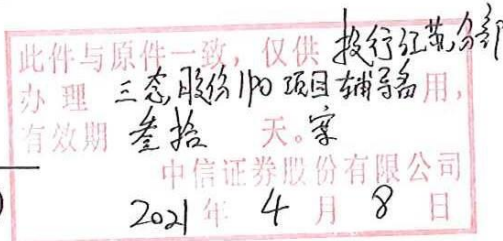 此件与原件一致，仅供 投行江苏分部
办理 三态股份IPO项目辅导备案用，
有效期 叁拾 天。
中信证券股份有限公司
2021年4月8日